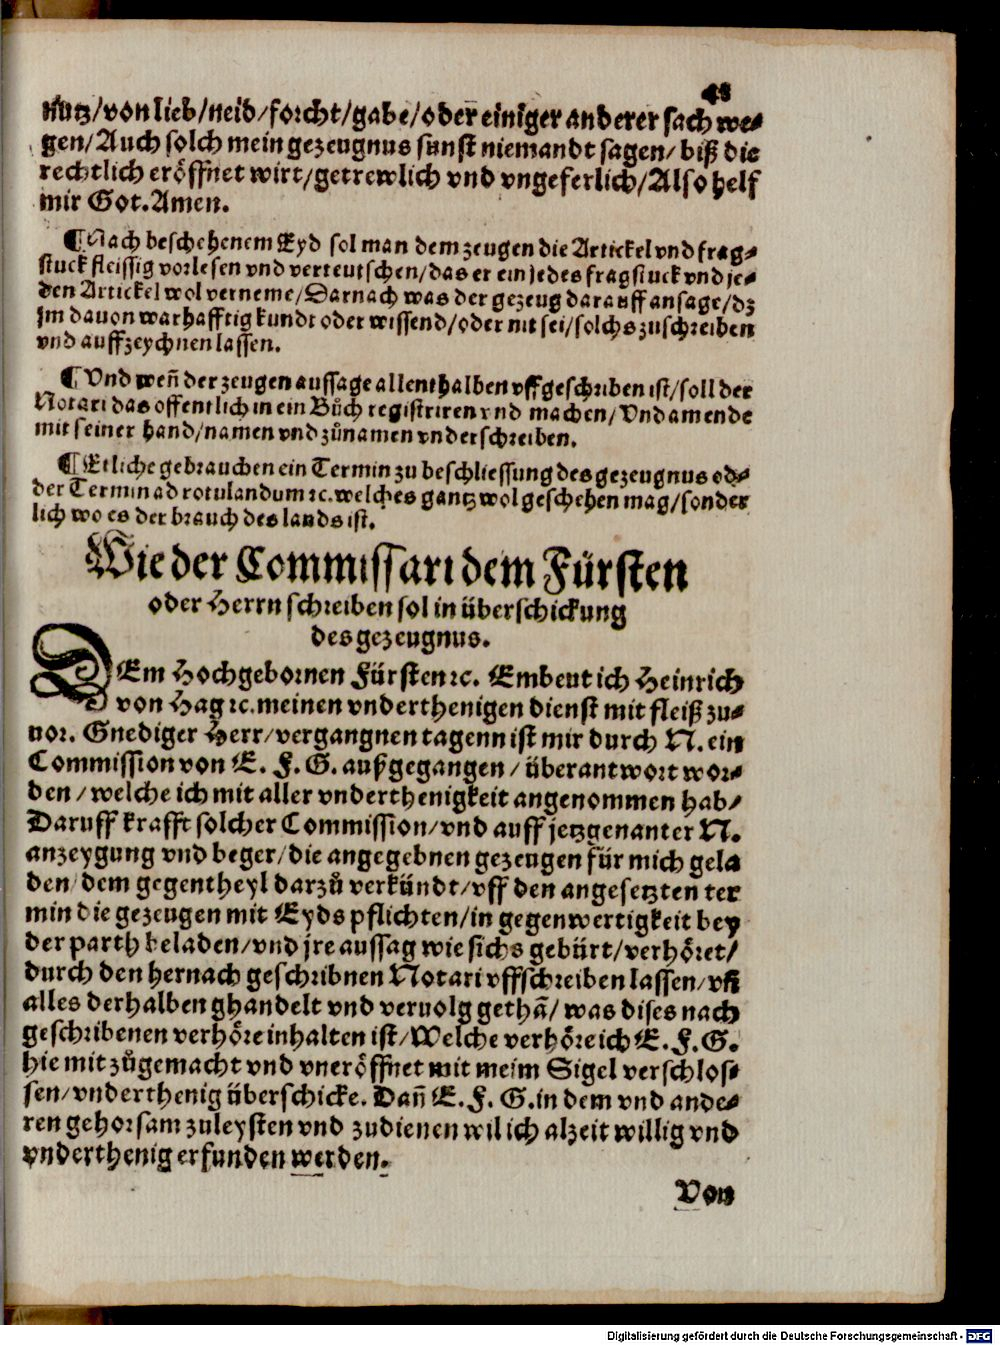 48
nutz/von lieb/neid/forcht/gabe/oder einiger anderer sach we⸗
gen/Auch solch mein gezeugnus sunst niemandt sagen/biß die
rechtlich eröffnet wirt/getrewlich vnd vngeferlich/Also helf
mir Got. Amen.
¶Nach beschehenem Eyd sol man dem zeugen die Artickel vnd frag⸗
stuck fleissig vorlesen vnd verteutschen/das er ein jedes fragstuck vnd je⸗
den Artickel wol verneme/Darnach was der gezeug darauff ansage/dz
jm dauon warhafftig kundt oder wissend/oder nit sei/solchs zuschreiben
vnd auffzeychnen lassen.
¶ Vnd weñ der zeugen aussage allenthalben vffgeschriben ist/soll der
Notari das offentlich in ein Bůch registriren vnd machen/Vnd am ende
mit seiner hand/namen vnd zůnamen vnderschreiben.
¶Etliche gebrauchen ein Termin zu beschliessung des gezeugnus od⸗
der Termin ad rotulandum ꝛc. welches gantz wol geschehen mag/sonder
lich wo es der brauch des lands ist.
Wie der Commissari dem Fürsten
oder Herrn schreiben sol in überschickung
des gezeugnus.
DEm Hochgebornen Fürsten ꝛc. Embeut ich Heinrich
von Hag ꝛc. meinen vnderthenigen dienst mit fleiß zu⸗
uor. Gnediger Herr/vergangnen tagenn ist mir durch N. ein
Commission von E. F. G. außgegangen/überantwort wor⸗
den/welche ich mit aller vnderthenigkeit angenommen hab/
Daruff krafft solcher Commission/vnd auff jetzgenanter N.
anzeygung vnd beger/die angegebnen gezeugen für mich gela
den/dem gegentheyl darzů verkündt/vff den angesetzten ter
min die gezeugen mit Eyds pflichten/in gegenwertigkeit bey
der parth beladen/vnd jre aussag wie sichs gebürt/verhöret/
durch den hernach geschribnen Notari vffschreiben lassen/vñ
alles derhalben ghandelt vnd veruolg gethã/was dises nach
geschribenen verhöre inhalten ist/Welche verhöre ich E. F. G.
hie mit zůgemacht vnd vneröffnet mit meim Sigel verschlos⸗
sen/vnderthenig überschicke. Dañ E. F. G. in dem vnd ande⸗
ren gehorsam zuleysten vnd zudienen wil ich alzeit willig vnd
vnderthenig erfunden werden.
Von
Digitalisierung gefördert durch die Deutsche Forschungsgemeinschaft - DFG